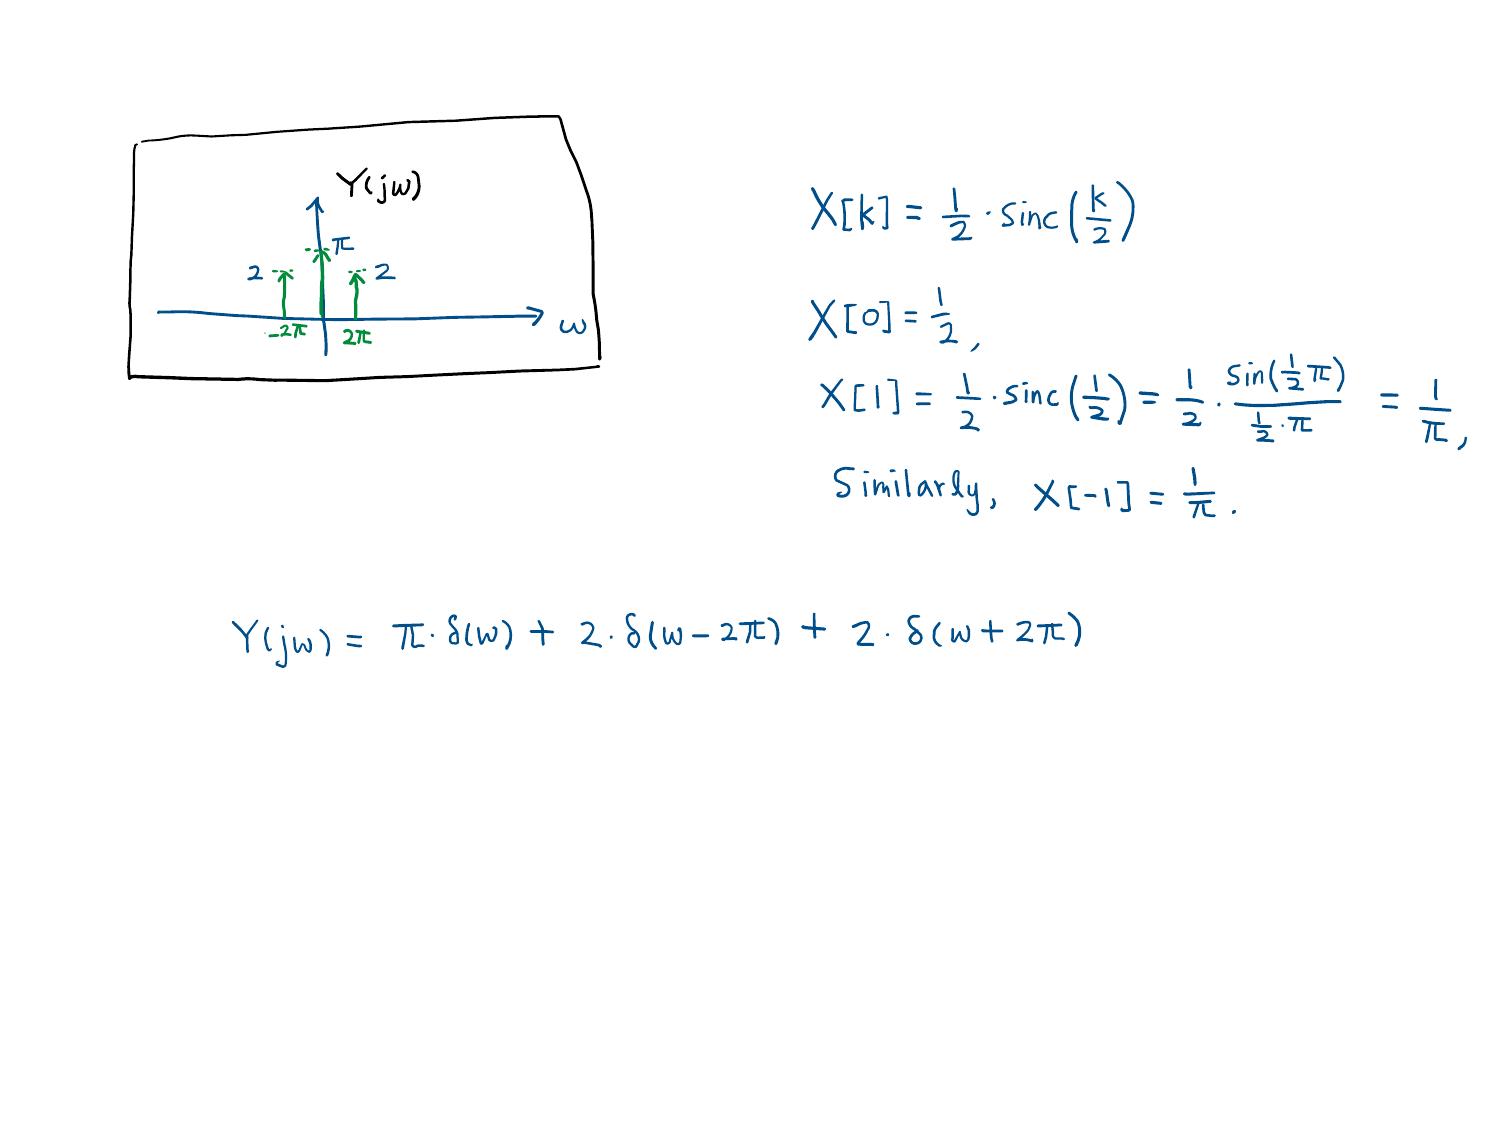 Y(jω)
π
2 2
-2π 2π
ω
X[k] = 1/2 · sinc(k/2)
X[0] = 1/2,
X[1] = 1/2 · sinc(1/2) = 1/2 · sin(1/2 π) / (1/2 · π) = 1/π,
Similarly, X[-1] = 1/π.
Y(jω) = π · δ(ω) + 2 · δ(ω - 2π) + 2 · δ(ω + 2π)